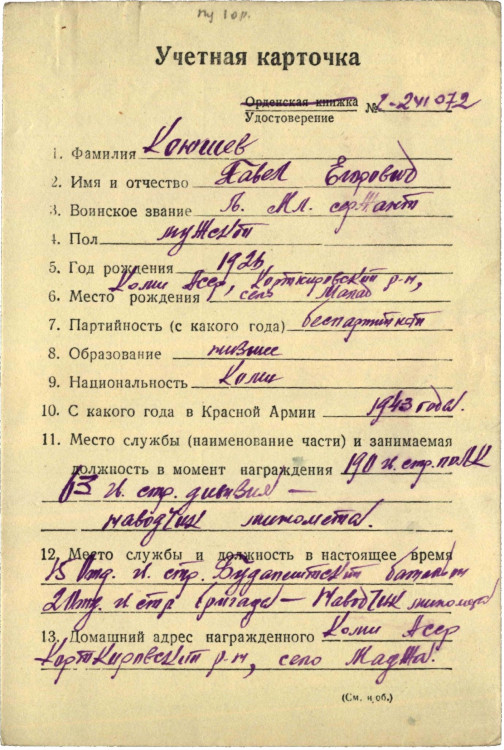 Учетная карточка
Орденская книжка
Удостоверение № 2-241072
1. Фамилия Конюшев
2. Имя и отчество Павел Егорович
3. Воинское звание Гв. Мл. сержант
4. Пол мужской
5. Год рождения 1926
Коми Асср, Корткировский р-н,
6. Место рождения село
7. Партийность (с какого года) беспартийный
8. Образование низшее
9. Национальность Коми
10. С какого года в Красной Армии 1943 года.
11. Место службы (наименование части) и занимаемая
должность в момент награждения 190 г. стр. полк
63 г. стр. дивизия —
наводчик миномета.
12. Место службы и должность в настоящее время
15 Отд. г. стр. Будапештский батальон
2 Отд. г стр бригада — наводчик миномета
13. Домашний адрес награжденного Коми Асср
Корткировский р-н, село Маджа.
(См. н, об.)